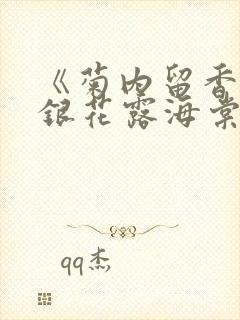 《菊内留香
银花露海棠
qq杰